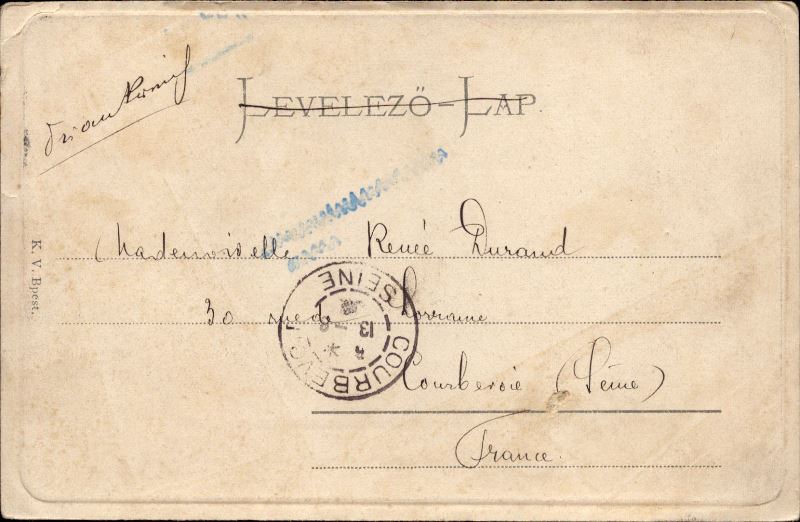 Frankreich
LEVELEZŐ-LAP
K. V. Bpest.
Mademoiselle Renée Durand
30 rue de Lorraine
Courbevoie (Seine)
France.
COURBEVOIE
SEINE
13